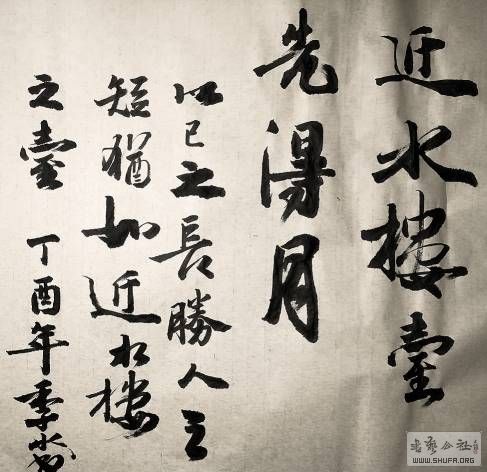 近水樓臺
先得月
以己之長勝人之
短猶如近水樓
之臺 丁酉年季
書藝公社
WWW.SHUFA.ORG